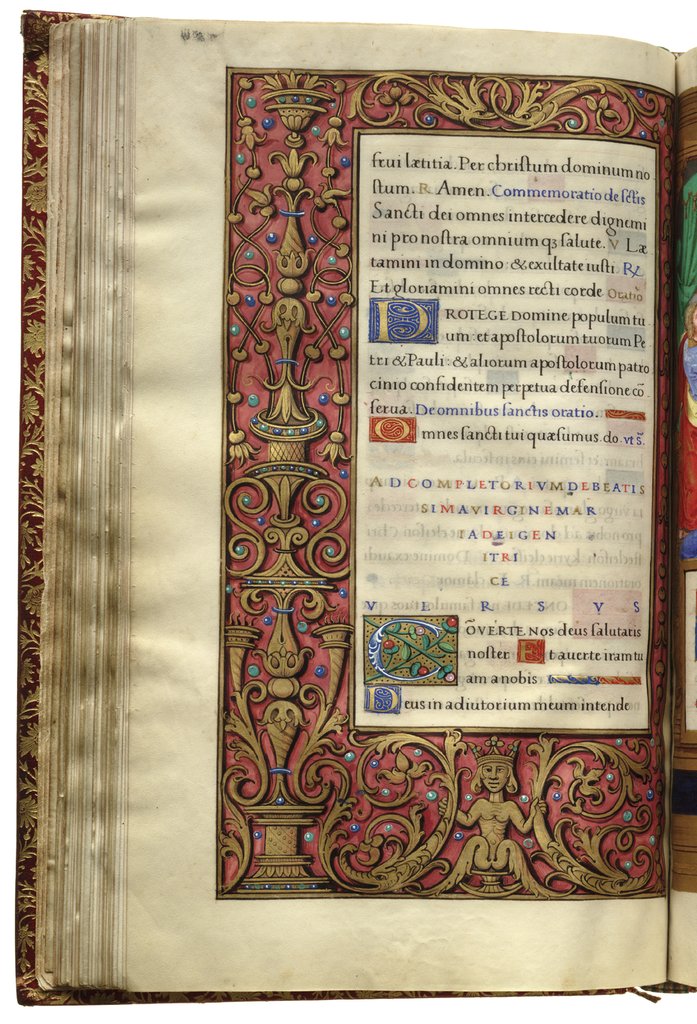 frui lætitia. Per chriſtum dominum no
ſtum. R Amen. Commemoratio de ſctis
Sancti dei omnes intercedere dignemi
ni pro noſtra omnium qȝ ſalute. V Læ
tamini in domino : & exultate iuſti. R
Et gloriamini omnes recti corde Oratio
PROTEGE Domine populum tu
um : et apoſtolorum tuorum Pe
tri & Pauli : & aliorum apoſtolorum patro
cinio confidentem perpetua defenſione cō
ſerua. De omnibus ſanctis oratio.
Omnes ſancti tui quæſumus. do. vt s̄.
AD COMPLETORIVM DE BEATIS
SIMA VIRGINE MAR
IA DEI GEN
ITRI
CE
VERSVS
CŌVERTE nos deus ſalutaris
noſter Et auerte iram tu
am a nobis
Deus in adiutorium meum intende